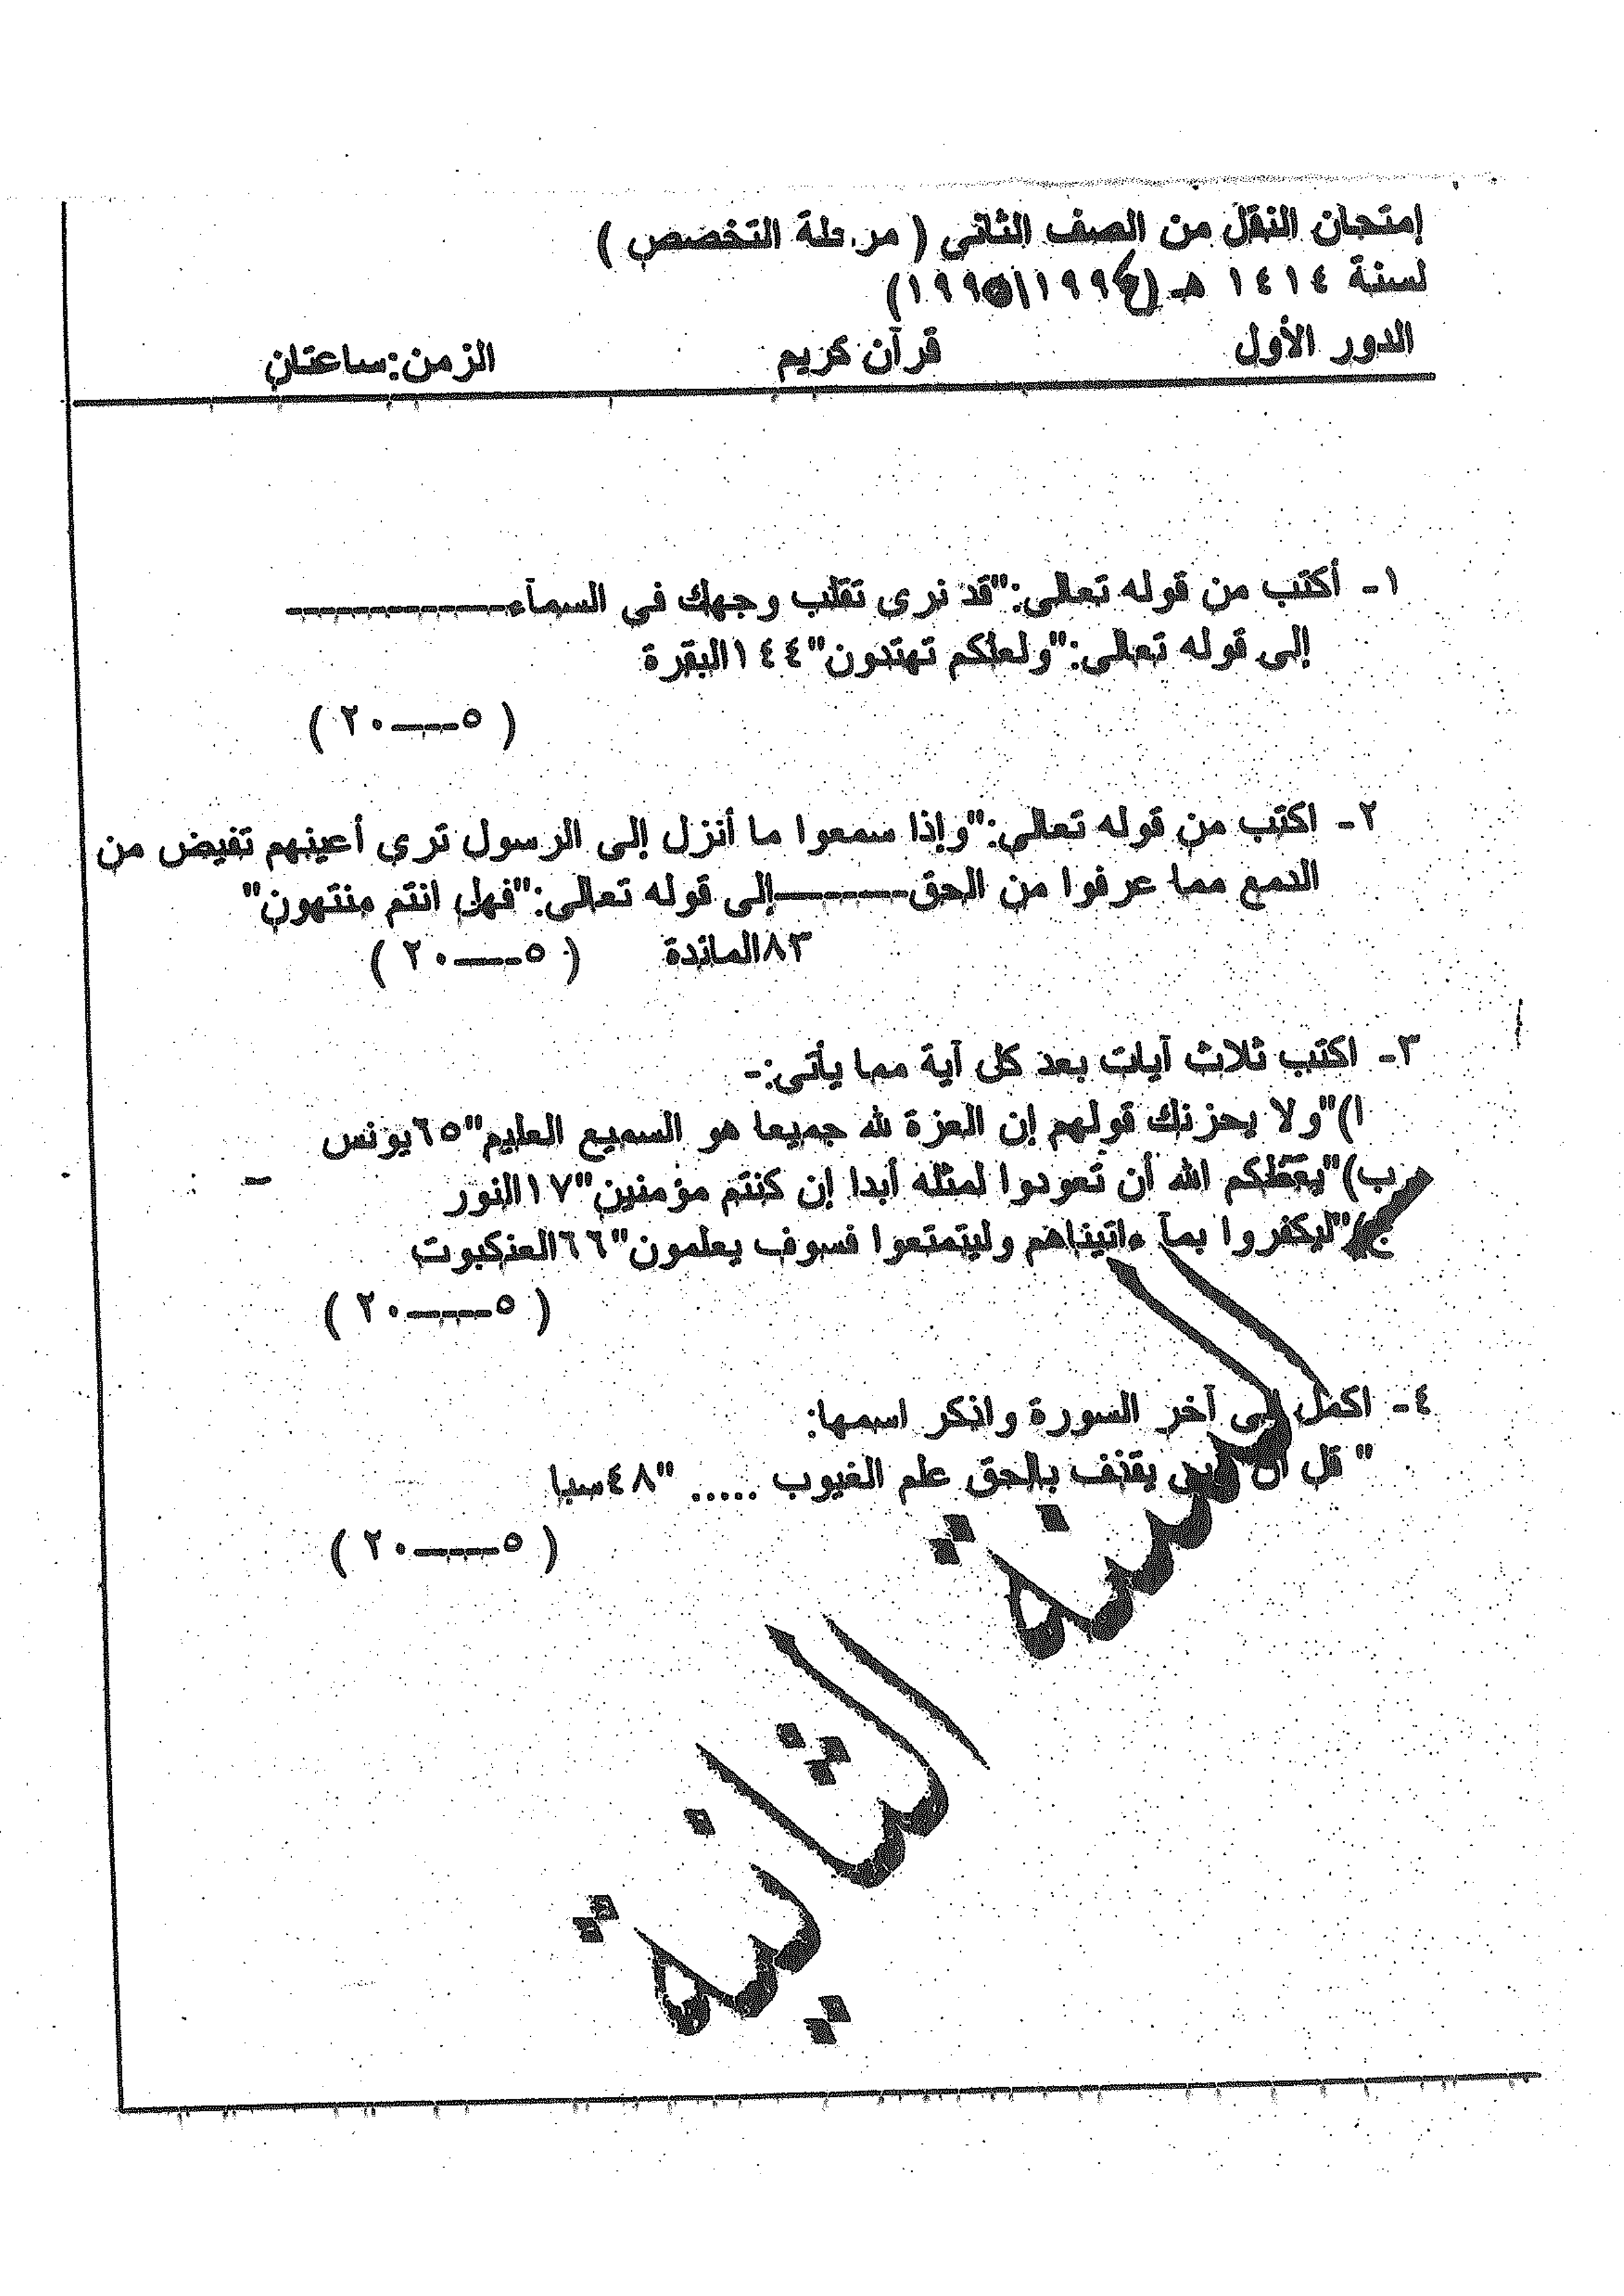 إمتحان النقل من الصف الثاني ( مرحلة التخصص )
لسنة ١٤١٤ هـ (١٩٩٥/١٩٩٤)
الدور الأول قرآن كريم الزمن:ساعتان
١- أكتب من قوله تعالى:"قد نرى تقلب وجهك في السمآء-------------
إلى قوله تعالى:"ولعلكم تهتدون"١٤٤البقرة
( ٥----٢٠ )
٢- اكتب من قوله تعالى:"وإذا سمعوا ما أنزل إلى الرسول تري أعينهم تفيض من
الدمع مما عرفوا من الحق--------إلى قوله تعالى:"فهل انتم منتهون"
٨٣المائدة ( ٥----٢٠ )
٣- اكتب ثلاث آيات بعد كل آية مما يأتى:-
ا)"ولا يحزنك قولهم إن العزة لله جميعا هو السميع العليم"٦٥يونس
ب)"يعظكم الله أن تعودوا لمثله أبدا إن كنتم مؤمنين"١٧النور
ج)"ليكفروا بمآ ءاتيناهم وليتمتعوا فسوف يعلمون"٦٦العنكبوت
( ٥-----٢٠ )
٤- اكمل إلى آخر السورة واذكر اسمها:
" قل ان ربى يقذف بالحق علم الغيوب ....."٤٨سبا
( ٥-----٢٠ )
السنة الثانية